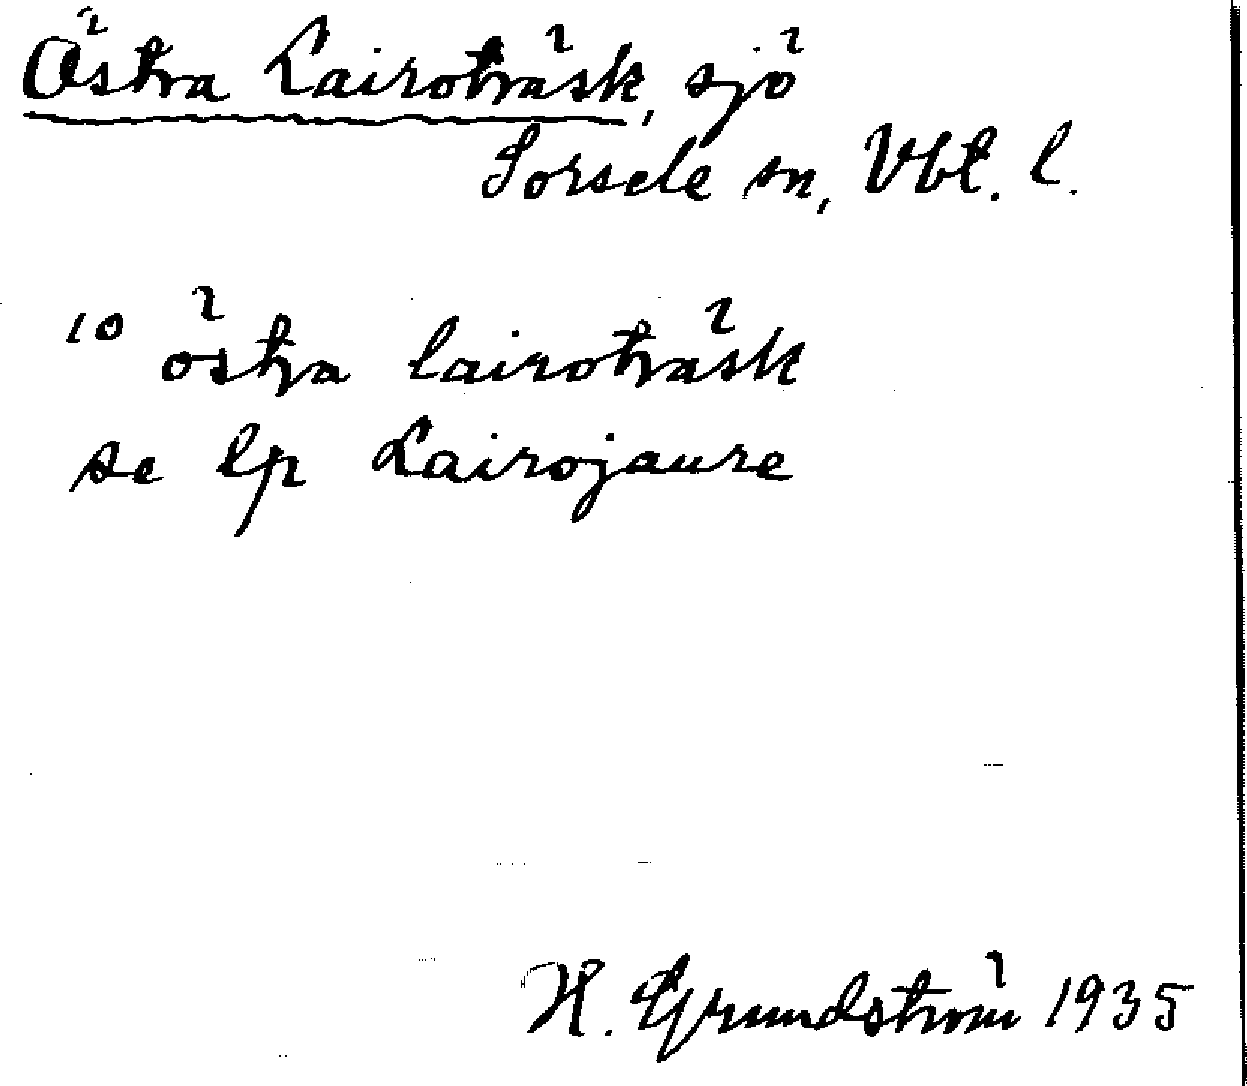 Östra Lairoträsk, sjö
Sorsele sn, Vbt. l.
10 östra lairoträsk
se lp Lairojaure
H. Grundström 1935